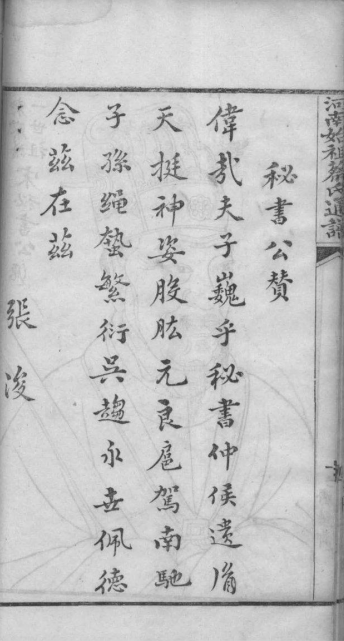 河南始祖蔡氏通譜
秘書公贊
偉哉夫子巍乎秘書仲侯遺胤
天挺神姿股肱元良扈駕南馳
子孫繩蟄繁衍吳越永世佩德
念茲在茲
張浚